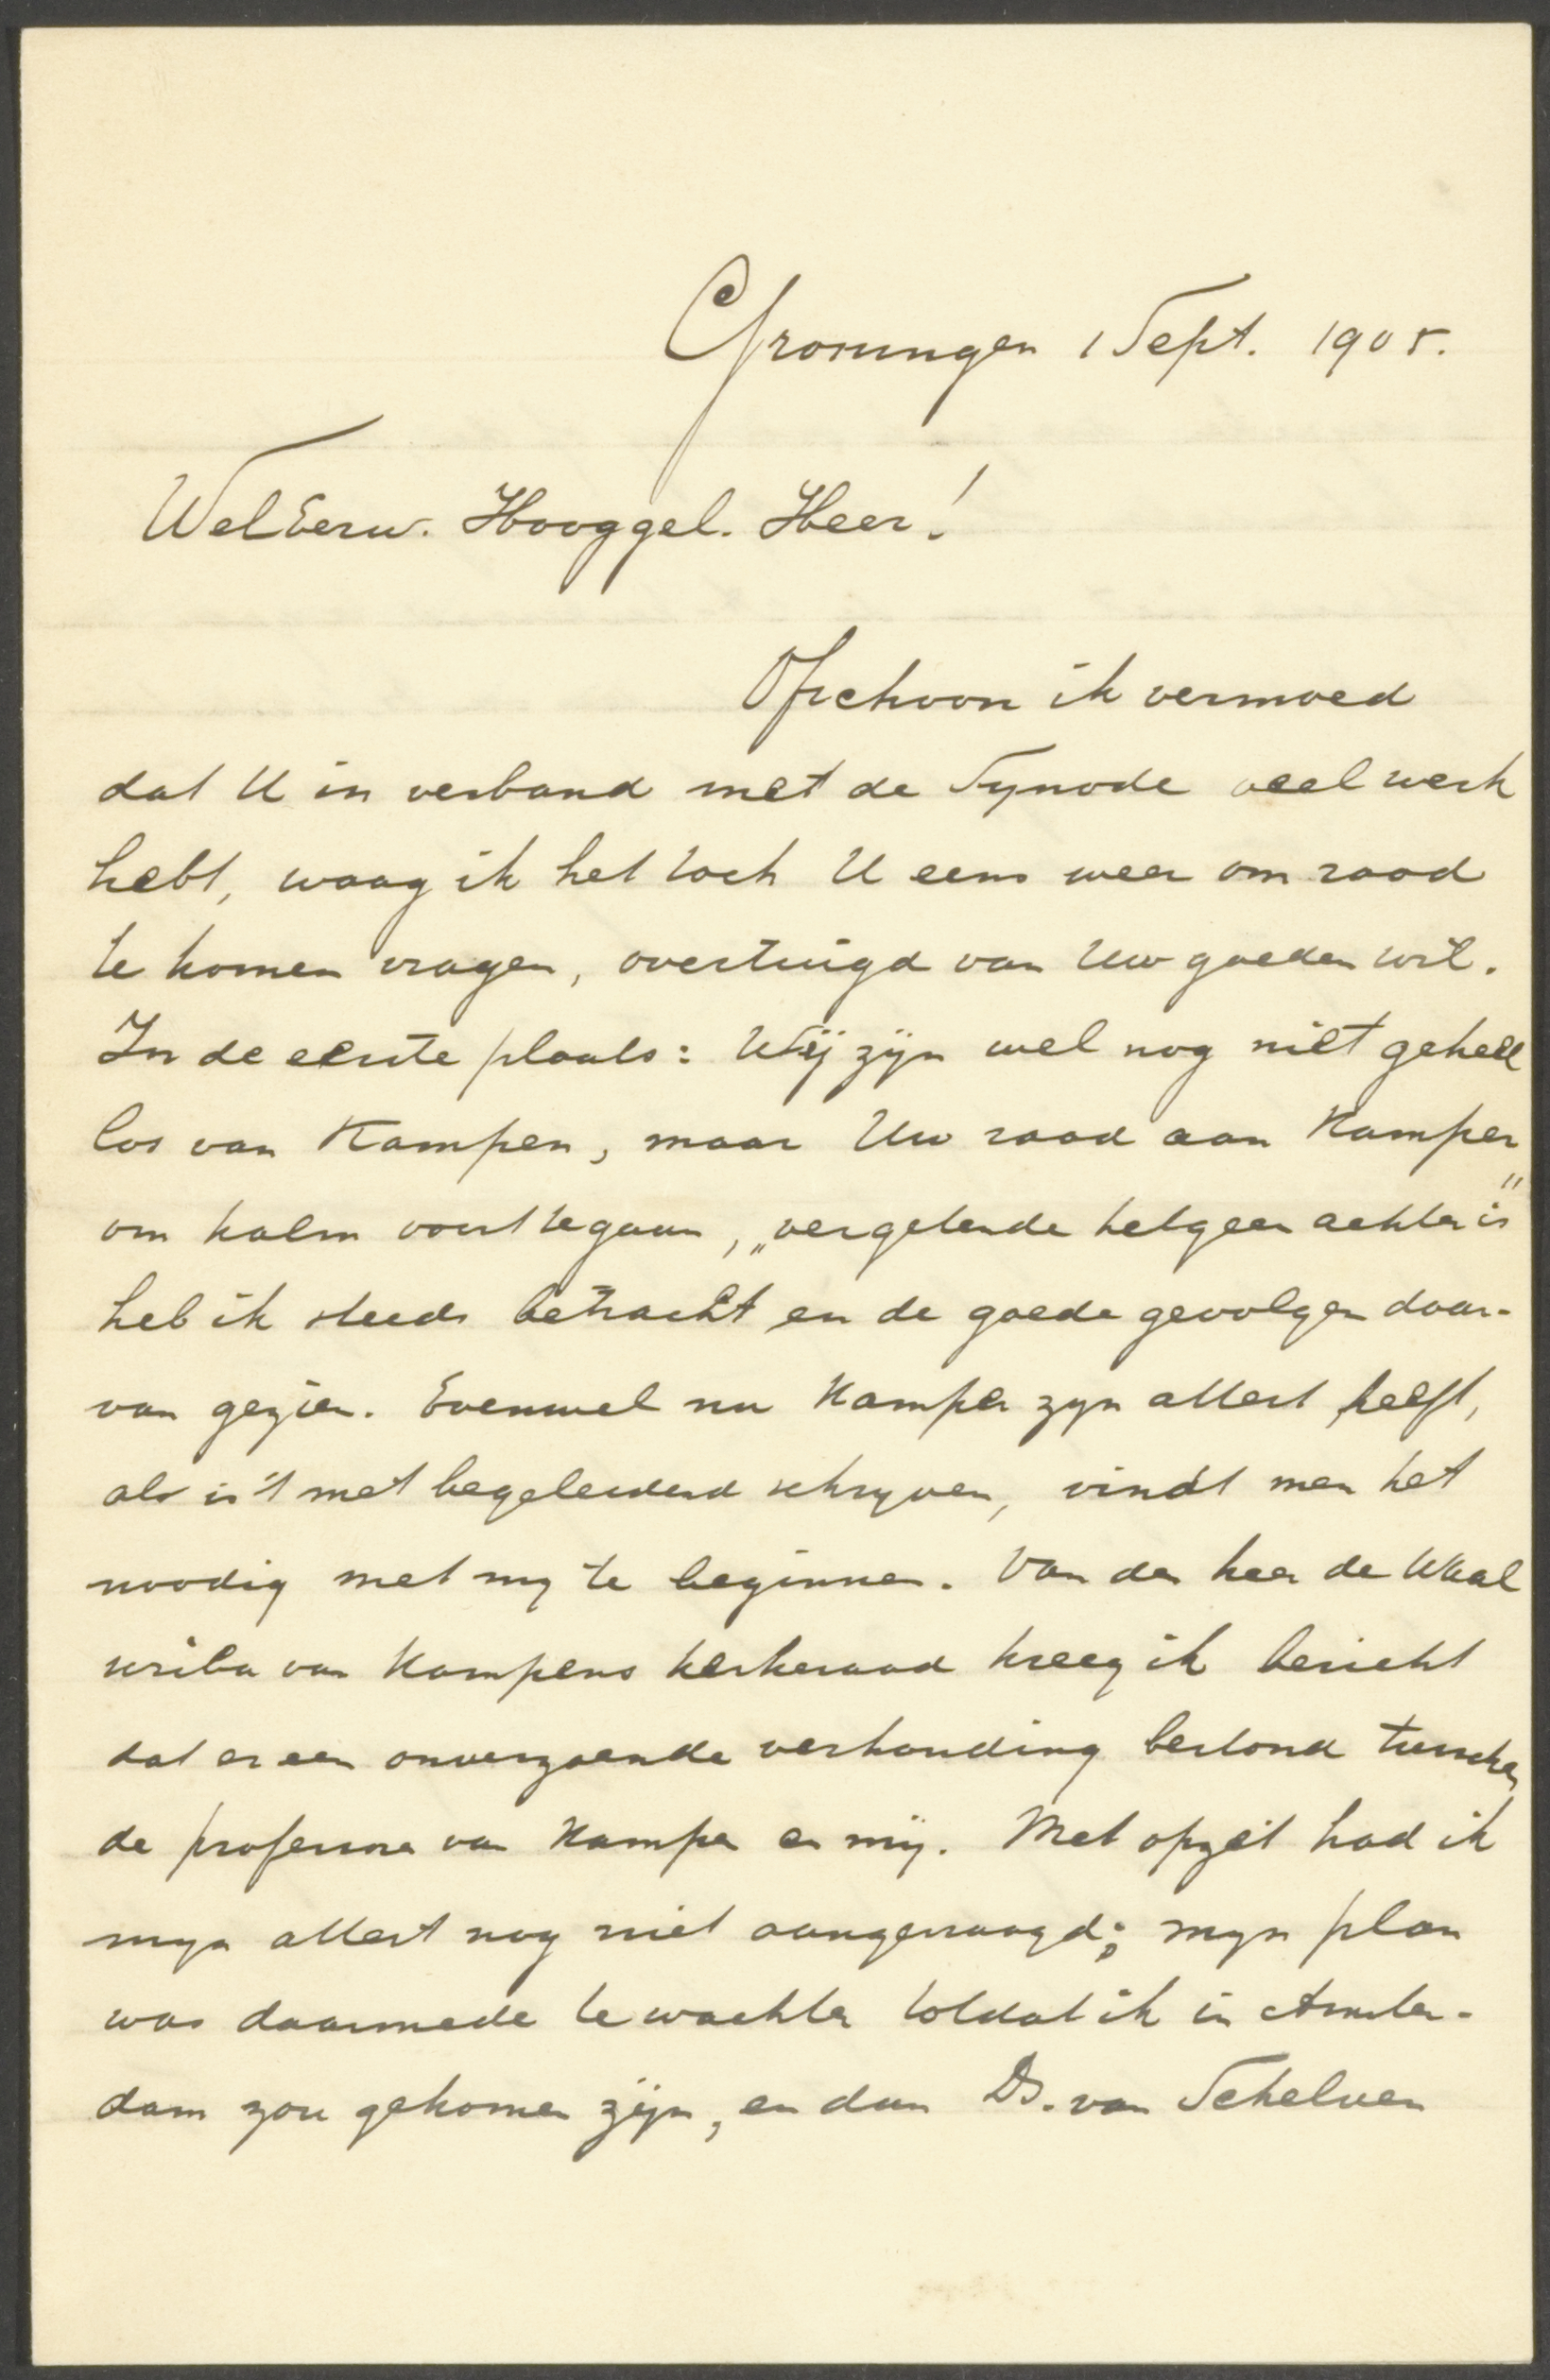 Groningen 1 Sept. 1905.
WelEerw. Hooggel. Heer!
Ofschoon ik vermoed
dat U in verband met de Synode veel werk
hebt, waag ik het toch U eens weer om raad
te komen vragen, overtuigd van Uw goeden wil.
In de eerste plaats: Wij zijn wel nog niet geheel
los van Kampen, maar Uw raad aan Kamper
om kalm voort te gaan, „vergetende hetgeen achter is"
heb ik steeds betracht en de goede gevolgen daar-
van gezien. Evenwel nu Kamper zijn attest heeft,
als is 't met begeleidend schrijven, vindt men het
noodig met mij te beginnen. Van den heer de Waal
scriba van Kampens kerkeraad kreeg ik bericht
dat er een onverzoende verhouding bestond tusschen
de professoren van Kampen en mij. Met opzet had ik
mijn attest nog niet aangevraagd; mijn plan
was daarmede te wachten totdat ik in Amster-
dam zou gekomen zijn, en dan Ds. van Schelven